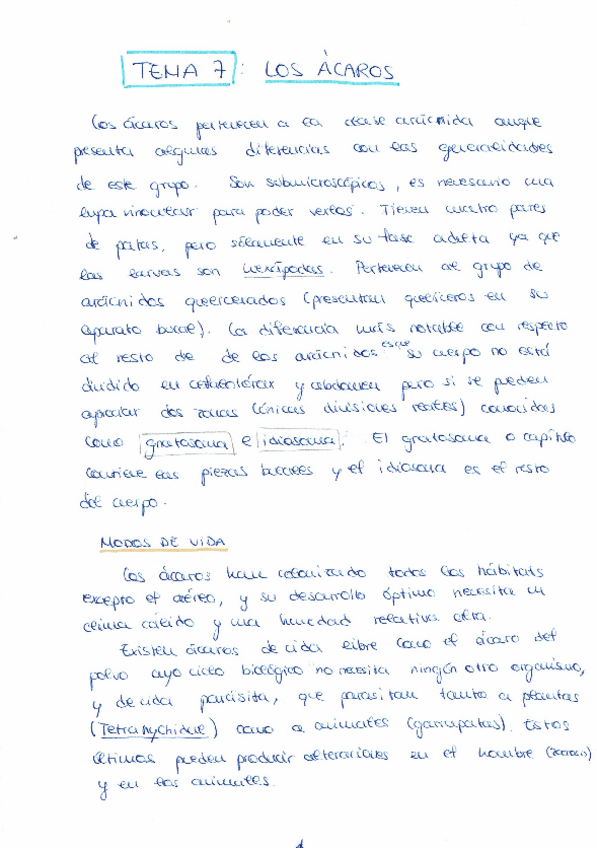 TEMA 7: LOS ÁCAROS
Los ácaros pertenecen a la clase arácnida aunque
presenta algunas diferencias con las generalidades
de este grupo. Son submicroscópicos, es necesario una
lupa binocular para poder verlos. Tienen cuatro pares
de patas, pero solamente en su fase adulta ya que
las larvas son hexápodas. Pertenecen al grupo de
arácnidos quelicerados (presentan quelíceros en su
aparato bucal). La diferencia más notable con respecto
al resto de de los arácnidos es que su cuerpo no está
dividido en cefalotórax y abdomen pero si se pueden
apreciar dos zonas (únicas divisiones reales) conocidas
como gnatosoma e idiosoma. El gnatosoma o capítulo
contiene las piezas bucales y el idiosoma es el resto
del cuerpo.
MODOS DE VIDA
Los ácaros han colonizado todos los hábitats
excepto el aéreo, y su desarrollo óptimo necesita un
clima cálido y una humedad relativa alta.
Existen ácaros de vida libre como el ácaro del
polvo cuyo ciclo biológico no necesita ningún otro organismo,
y de vida parásita, que parasitan tanto a plantas
(Tetranychidae) como a animales (garrapatas). Estos
últimos pueden producir alteraciones en el hombre
y en los animales.
1